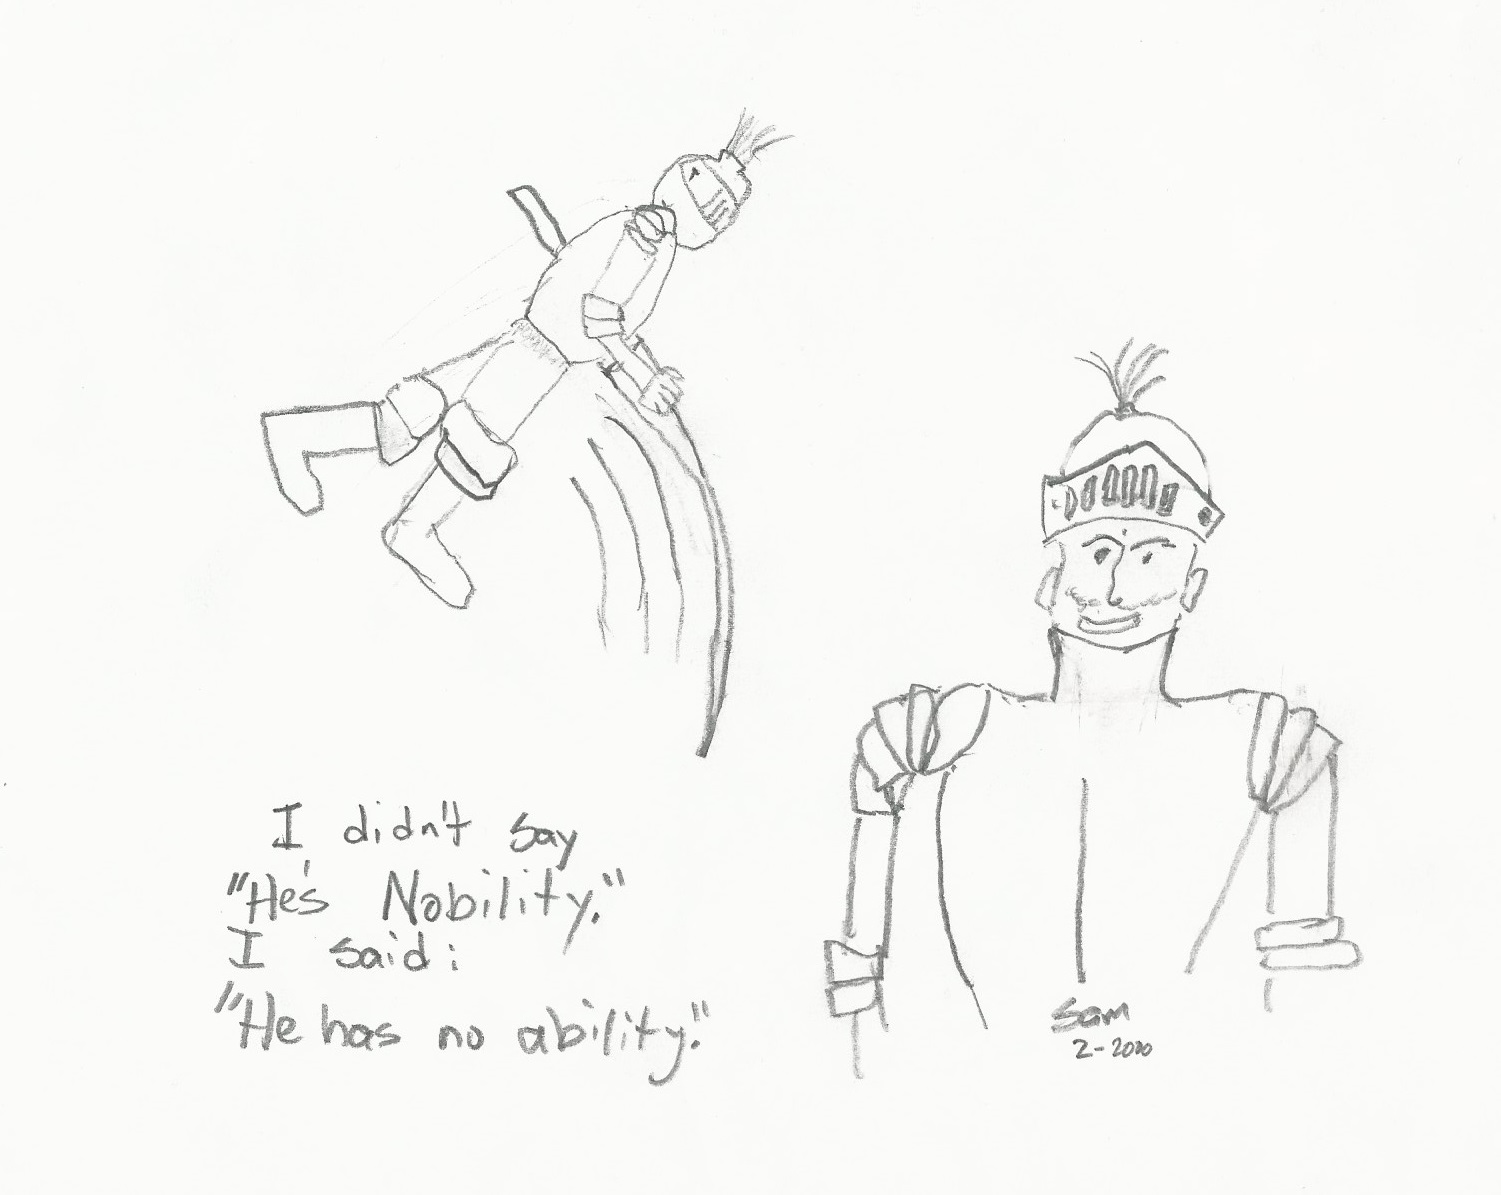 I didn't say
"He's Nobility."
I said:
"He has no ability."
Sam
2-2020